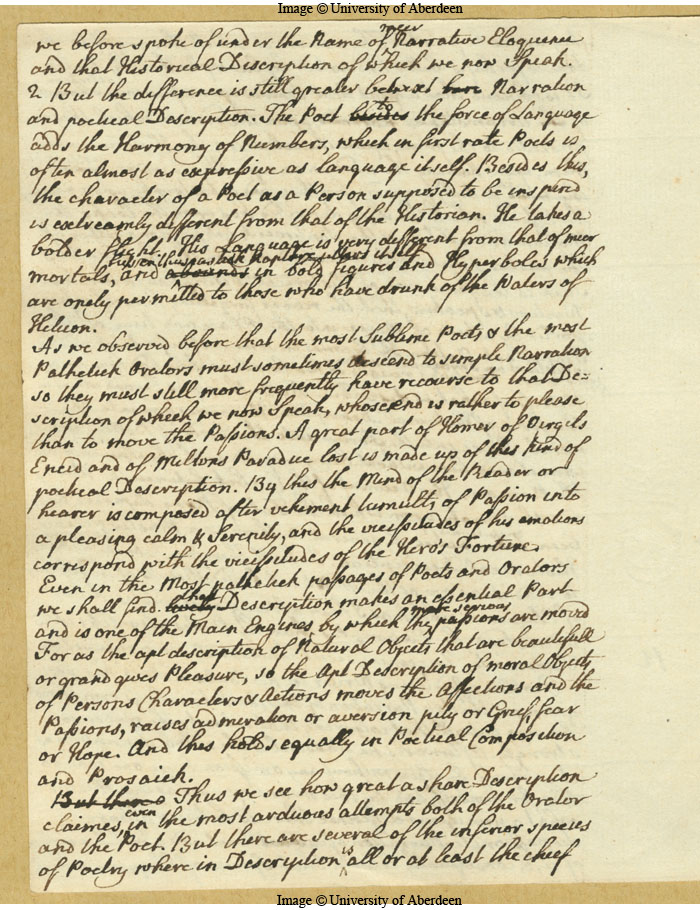 Image © University of Aberdeen
we before spoke of under the Name of meer Narrative Eloquence
and that Historical Discription of which we now Speak.
2 But the difference is still greater betwixt here Narration
and poetical Description. The Poet besides to the force of Language
adds the Harmony of Numbers, which in first rate Poets is
often almost as expressive as language itself. Besides this,
the character of a Poet as a Person supposed to be inspired
is extreamly different from that of the Historian. He takes a
bolder flight. His Language is very different from that of meer
mortals, and abounds in bold figures and Hyperboles which
are onely permitted to those who have drunk of the Waters of
Helicon.
As we observed before that the most Sublime Poets & the most
Pathetick Orators must sometimes descend to simple Narration
so they must still more frequently have recourse to that De=
scription of which we now Speak, whose end is rather to please
than to move the Passions. A great part of Homer of Virgils
Eneid and of Miltons Paradice lost is made up of this kind of
poetical Description. By this the Mind of the Reader or
hearer is composed after vehement tumults of Passion into
a pleasing calm & Serenity, and the vicissitudes of his emotions
correspond with the vicissitudes of the Hero's Fortune.
Even in the Most pathetick passages of Poets and Orators
we shall find. lively that Description makes an essential Part
and is one of the Main Engines by which the more serious passions are moved
For as the apt description of Natural Objects that are beautifull
or grand gives Pleasure, so the Apt Description of moral Objects
of Persons Characters & Actions moves the Affections and the
Passions, raises admiration or aversion pity or Grief, fear
or Hope. And this holds equally in Poetical Composition
and Prosaick.
But there Thus we see how great a share Description
claimes, even in the most arduous attempts both of the Orator
and the Poet. But there are several of the inferior species
of Poetry where in Description is all or at least the chief
Image © University of Aberdeen